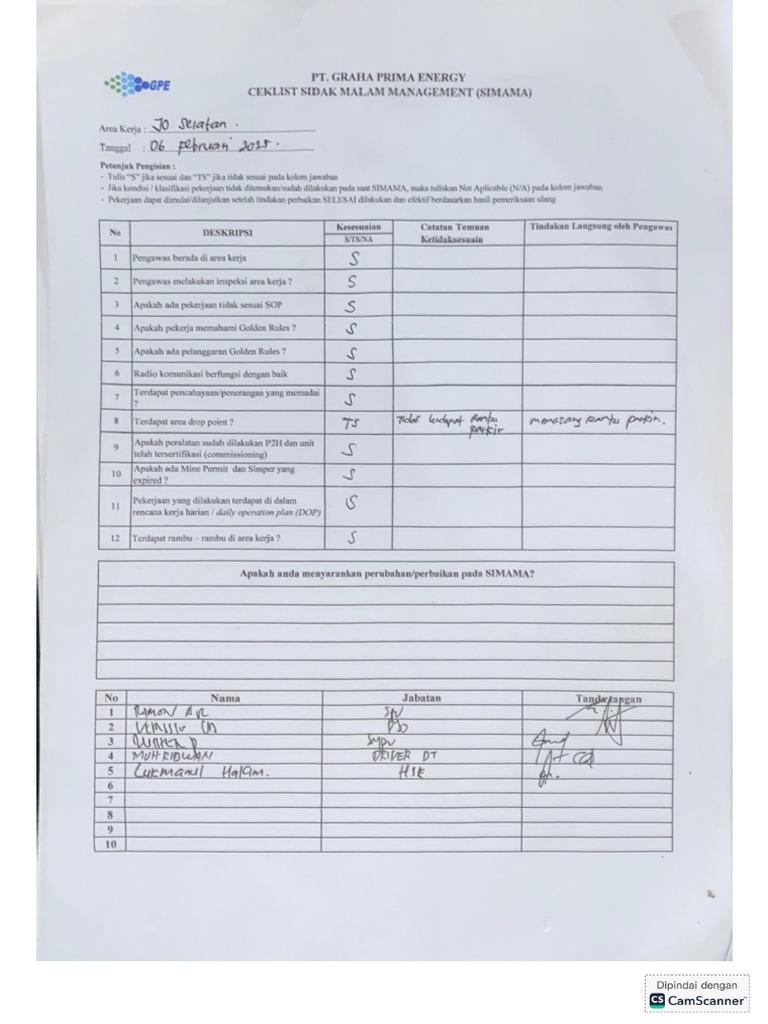 GPE
PT. GRAHA PRIMA ENERGY
CEKLIST SIDAK MALAM MANAGEMENT (SIMAMA)
Area Kerja : JO Selatan .
Tanggal : 06 Februari 2025 .
Petunjuk Pengisian :
- Tulis "S" jika sesuai dan "TS" jika tidak sesuai pada kolom jawaban
- Jika kondisi / klasifikasi pekerjaan tidak ditemukan/sudah dilakukan pada saat SIMAMA, maka tuliskan Not Aplicable (N/A) pada kolom jawaban
- Pekerjaan dapat dimulai/dilanjutkan setelah tindakan perbaikan SELESAI dilakukan dan efektif berdasarkan hasil pemeriksaan ulang
No DESKRIPSI Kesesuaian Catatan Temuan Tindakan Langsung oleh Pengawas
S/TS/NA Ketidaksesuain
1 Pengawas berada di area kerja S
2 Pengawas melakukan inspeksi area kerja ? S
3 Apakah ada pekerjaan tidak sesuai SOP S
4 Apakah pekerja memahami Golden Rules ? S
5 Apakah ada pelanggaran Golden Rules ? S
6 Radio komunikasi berfungsi dengan baik S
7 Terdapat pencahayaan/penerangan yang memadai S
?
8 Terdapat area drop point ? TS Tidak terdapat Rambu memasang rambu parkir.
parkir
9 Apakah peralatan sudah dilakukan P2H dan unit S
telah tersertifikasi (commissioning)
10 Apakah ada Mine Permit dan Simper yang S
expired ?
11 Pekerjaan yang dilakukan terdapat di dalam S
rencana kerja harian / daily operation plan (DOP)
12 Terdapat rambu – rambu di area kerja ? S
Apakah anda menyarankan perubahan/perbaikan pada SIMAMA?
No Nama Jabatan Tanda tangan
1 RAMON
2
3
4 MUH RIDWAN DRIVER DT
5 Lukmanul Hakim. HSE
6
7
8
9
10
Dipindai dengan
CS CamScanner